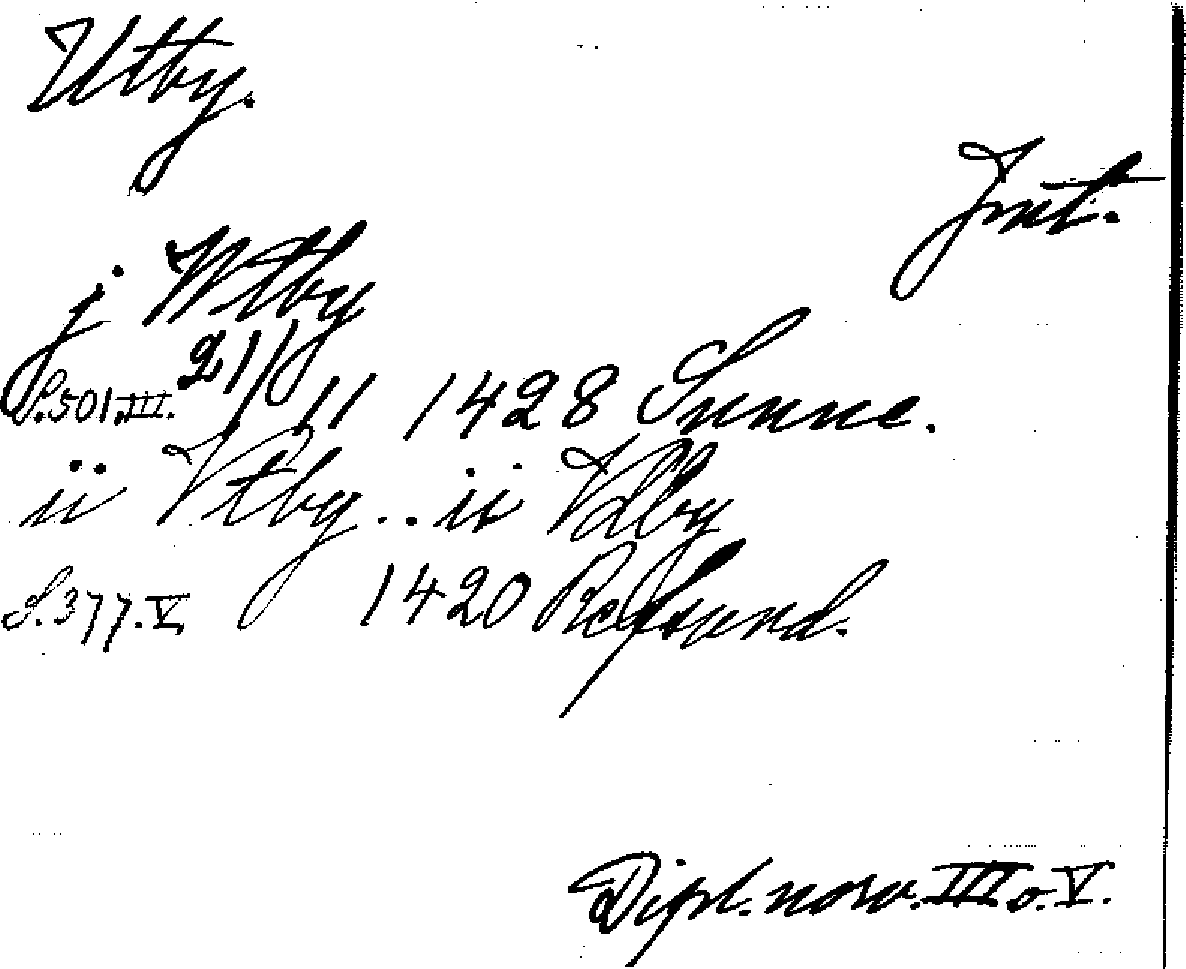 Utby.
Jmt.
j Wtby
S.501.III. 21/11 1428 Sunne.
ii Vtby.. ii Vdby
S.377.V. 1420 Refsund.
Dipl. norv. III o. V.